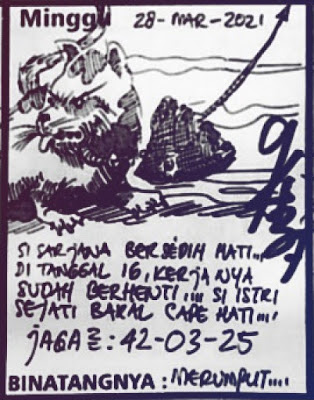 Minggu 28-MAR-2021
SI SARJANA BERSEDIH HATI....
DI TANGGAL 16, KERJANYA
SUDAH BERHENTI.... SI ISTRI
SEJATI BAKAL CAPE HATI....
JAGA2 : 42-03-25
BINATANGNYA : MERUMPUT....